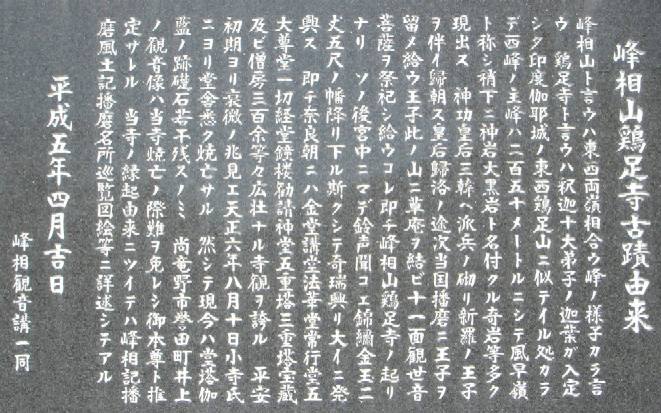 峰相山鶏足寺古蹟由来
峰相山ト言ウハ東西両嶺相合ウ峰ノ様子カラ言
ウ 鶏足寺ト言ウハ釈迦十大弟子ノ迦葉ガ入定
シタ印度伽耶城ノ東西鶏足山ニ似テイル処カラ
デ西峰ノ主峰ハ二百五十メートルニシテ風早嶺
ト称シ稍下ニ神岩大黒岩ト名付クル奇岩等多ク
現出ス 神功皇后三韓ヘ派兵ノ砌リ新羅ノ王子
ヲ伴イ帰朝ス皇后帰洛ノ途次当国播磨ニ王子ヲ
留メ給ウ王子此ノ山ニ草庵ヲ結ビ十一面観世音
菩薩ヲ祭祀シ給ウコレ即チ峰相山鶏足寺ノ起リ
ナリ ソノ後宮中ニマデ鈴声聞コエ錦繍金玉ニ
丈五尺ノ幡降リ下ル斯クシテ奇瑞興リ大イニ発
興ス 即チ奈良朝ニハ金堂講堂法華堂常行堂五
大尊堂一切経堂鐘楼勧請神堂五重塔三重塔宝蔵
及ビ僧房三百余等々広壮ナル寺観ヲ誇ル 平安
初期ヨリ衰微ノ兆見エ天正六年八月十日小寺氏
ニヨリ堂舎悉ク焼亡サル 然シテ現今ハ堂塔伽
藍ノ跡礎石若干残スノミ 尚竜野市誉田町井上
ノ観音像ハ当寺焼亡ノ際難ヲ免レシ御本尊ト推
定サレル 当寺ノ縁起由来ニツイテハ峰相記播
磨風土記播磨名所巡覧図絵等ニ詳述シテアル
平成五年四月吉日
峰相観音講一同